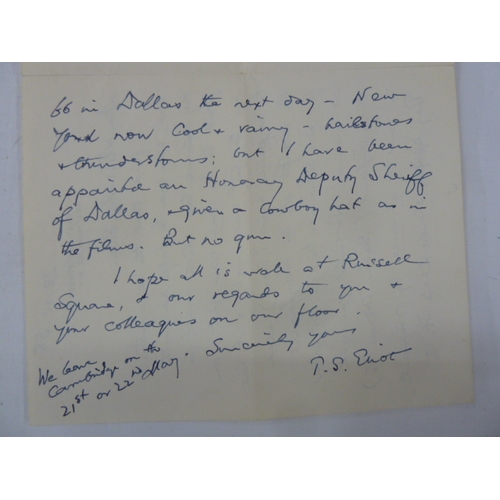 66 in Dallas the next day – New
York now cool & rainy – hailstones
& thunderstorms; but I have been
appointed an Honorary Deputy Sheriff
of Dallas, & given a cowboy hat as in
the films. But no gun.
I hope all is well at Russell
Square, & our regards to you &
your colleagues on our floor.
Sincerely yours
T. S. Eliot
We leave
Cambridge on the
21st or 22nd May.